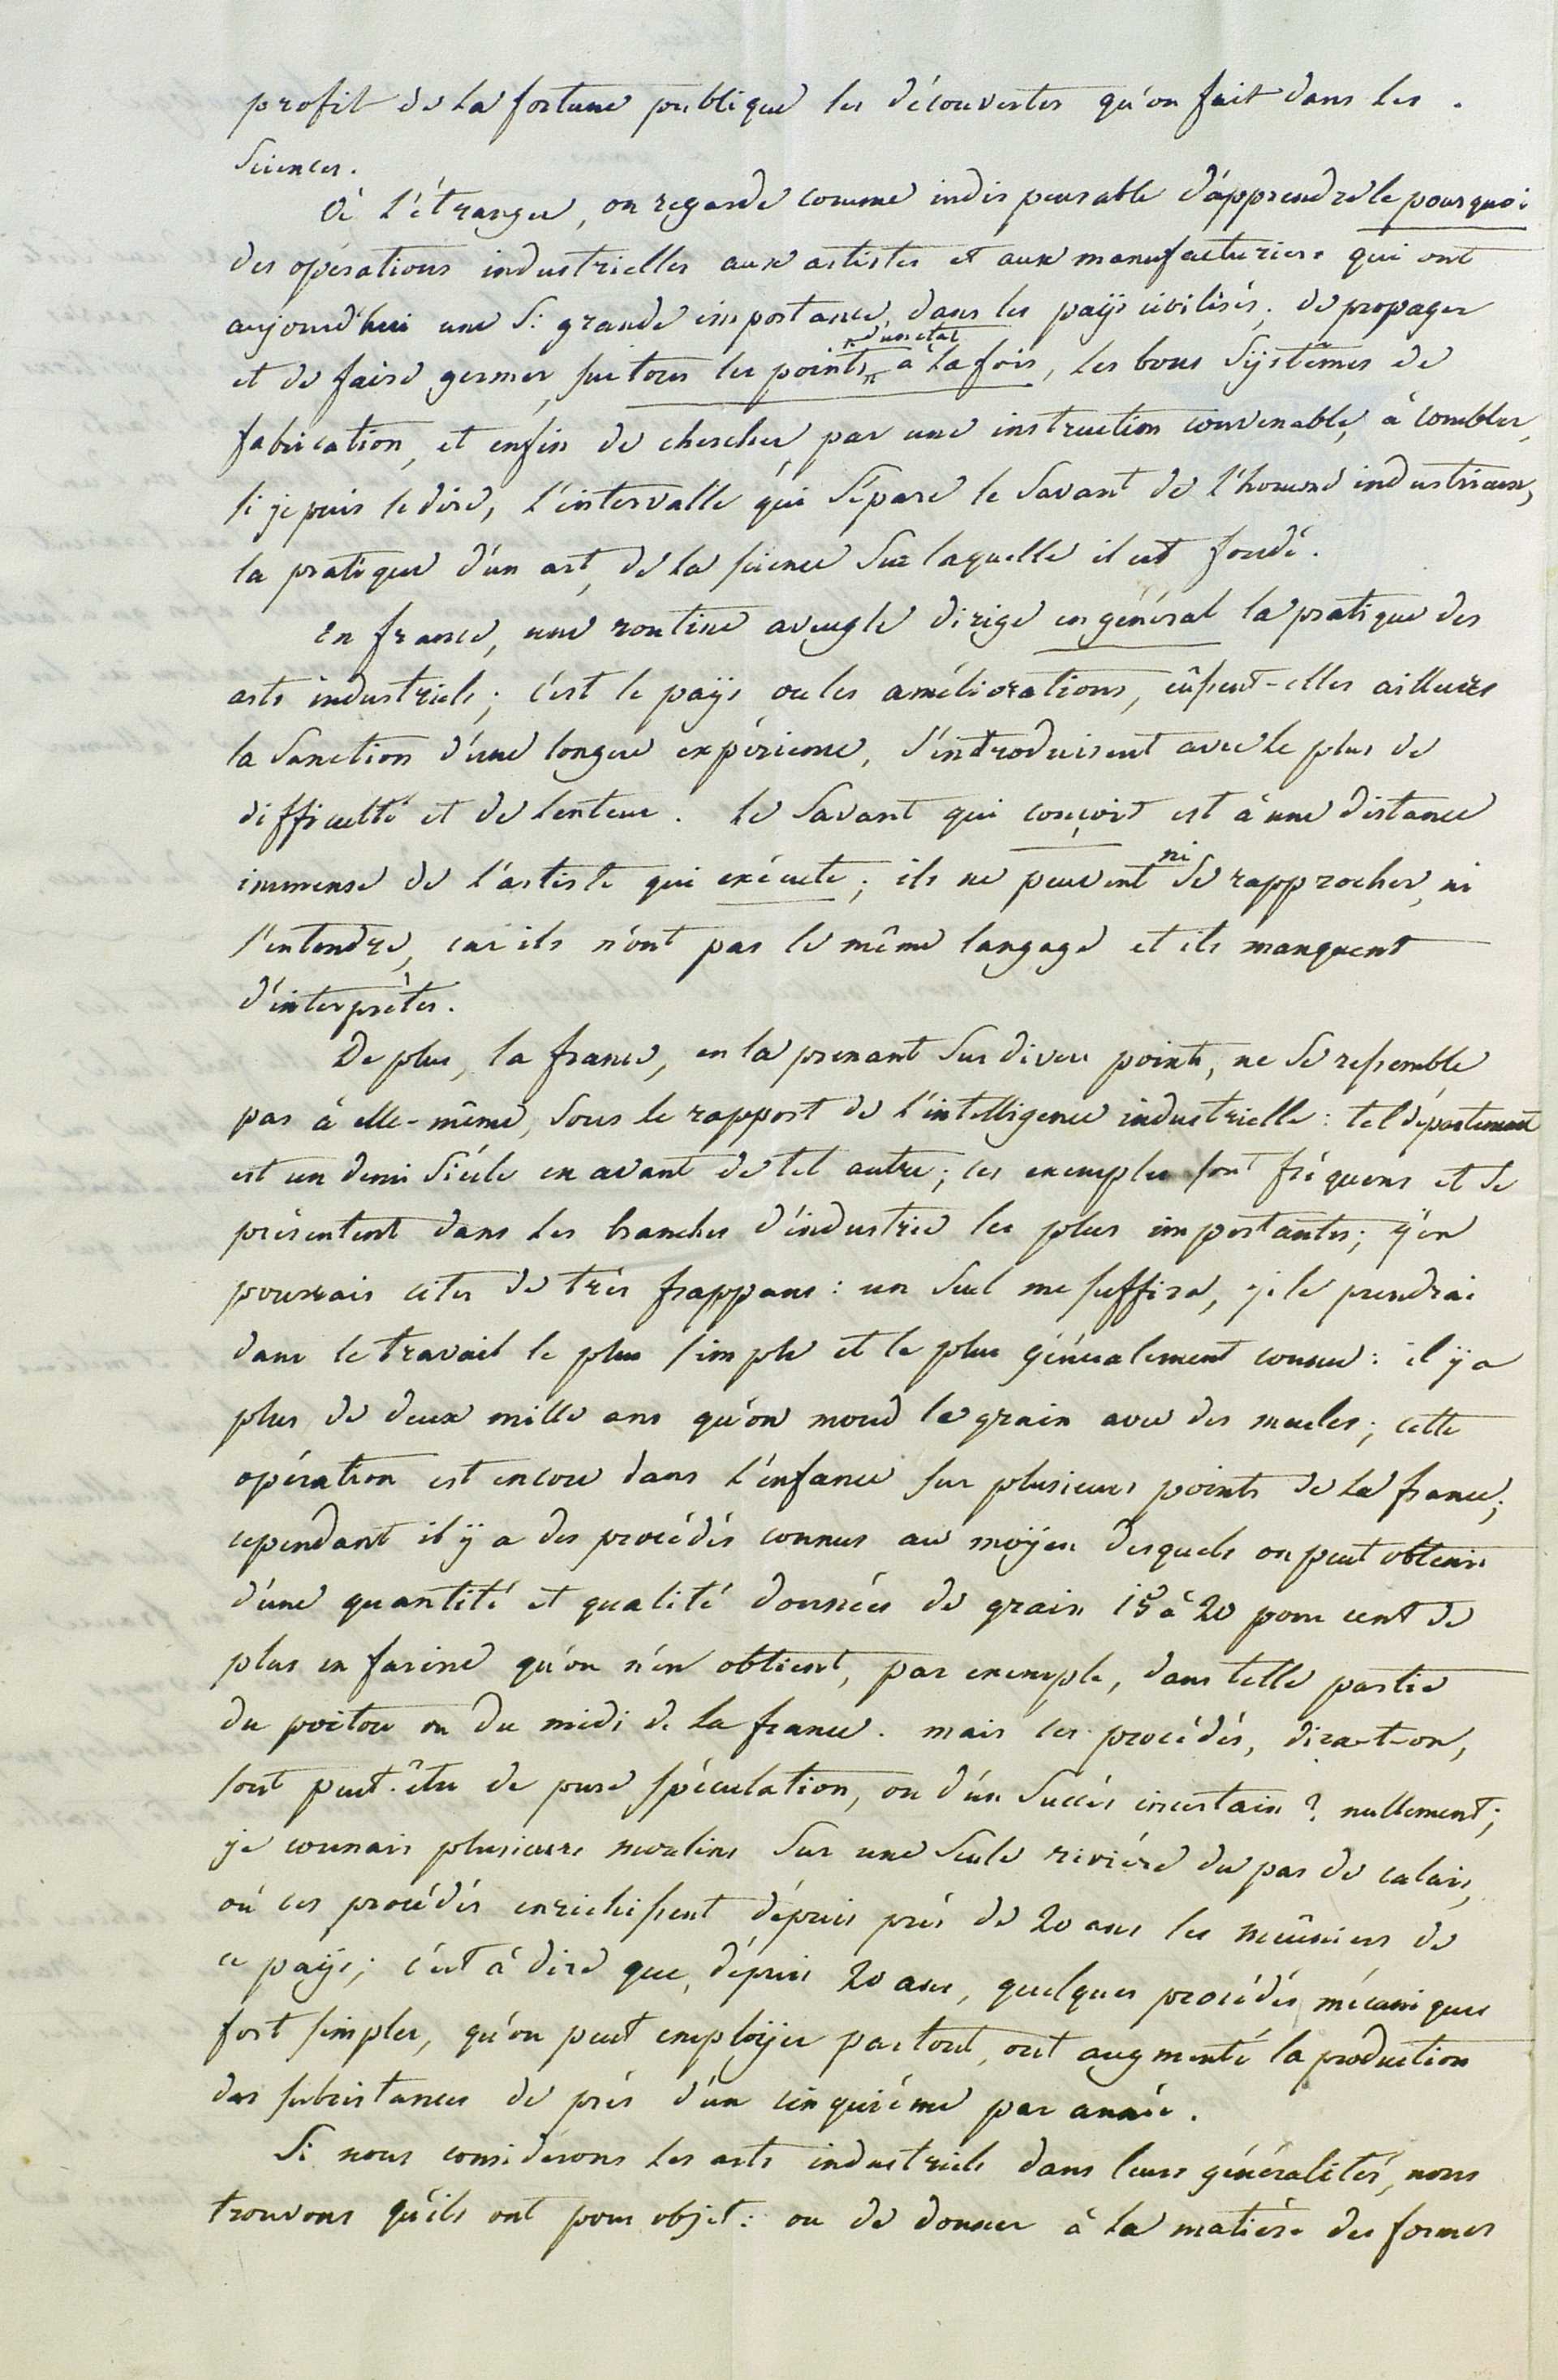 profit de la fortune publique les découvertes qu'on fait dans les
Sciences.
à l'étranger, on regarde comme indispensable d'apprendre le pourquoi
des opérations industrielles aux artistes et aux manufacturiers qui ont
aujourd'hui une Si grande importance dans les paÿs civilisés; de propager
d'un état
et de faire germer sur tous les points à la fois, les bons Sÿstêmes de
fabrication, et enfin de chercher, par une instruction convenable, à combler,
si je puis le dire, l'intervalle qui Sépare le Savant de l'homme industrieux,
la pratique d'un art, de la science Sur laquelle il est fondé.
En france, une routine aveugle dirige en général la pratique des
arts industriels; c'est le paÿs ou les améliorations, eussent-elles ailleurs
la Sanction d'une longue expérience, s'introduisent avec le plus de
difficulté et de lenteur. le Savant qui conçoit est à une distance
immense de l'artiste qui exécute; ils ne peuvent ni Se rapprocher, ni
s'entendre, car ils n'ont pas le même langage et ils manquent
d'interprètes.
De plus, la france, en la prenant Sur divers points, ne Se ressemble
pas à elle-même, Sous le rapport de l'intelligence industrielle: tel département
est un demi Siécle en avant de tel autre; ces exemples sont fréquens et Se
présentent dans les branches d'industrie les plus importantes; j'en
pourrais citer de très frappans: un Seul me suffira, je le prendrai
dans le travail le plus simple et le plus généralement connu: il ÿ a
plus de deux mille ans qu'on moud le grain avec des meules; cette
opération est encore dans l'enfance sur plusieurs points de la france;
cependant il ÿ a des procédés connus au moÿen desquels on peut obtenir
d'une quantité et qualité données de grain 15 à 20 pour cent de
plus en farine qu'on n'en obtient, par exemple, dans telle partie
du poitou ou du midi de la france. mais ces procédés, dira-t-on,
sont peut-être de pure spéculation, ou d'un Succès incertain? nullement;
je connais plusieurs moulins Sur une Seule riviére du pas de calais,
où ces procédés enrichissent dépuis prés de 20 ans les meûniers de
ce paÿs; c'est à dire que, dépuis 20 ans, quelques procédés mécaniques
fort simples, qu'on peut emploÿer partout, ont augmenté la production
des subsistances de prés d'un cinquiéme par année.
Si nous considérons les arts industriels dans leurs généralités, nous
trouvons qu'ils ont pour objet: ou de donner à la matiére des formes